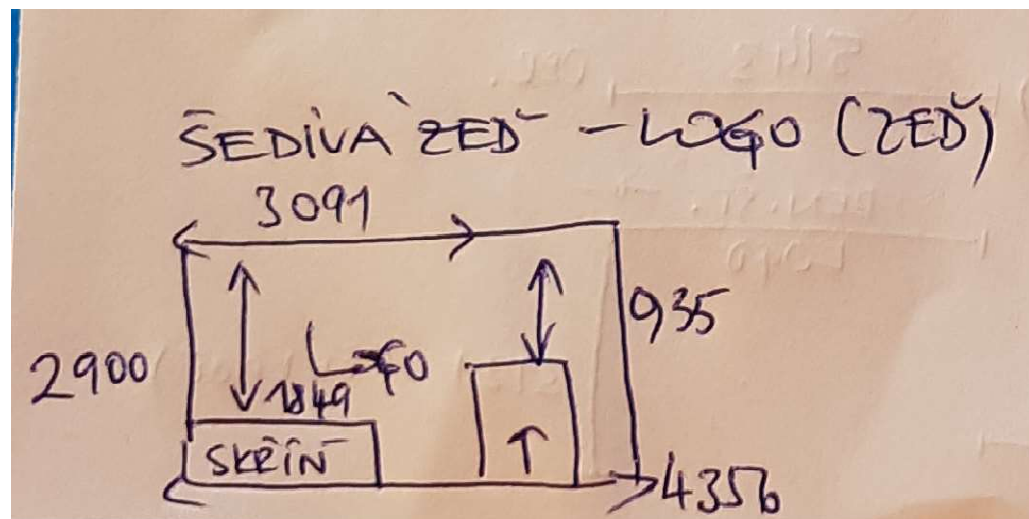 ŠEDIVÁ ZEĎ - LOGO (ZEĎ)
3091
935
2900
LOGO
1849
SKŘÍŇ
4356